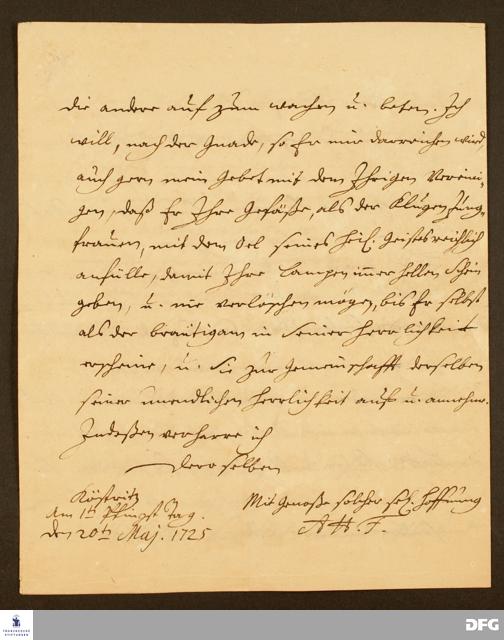 die andere auf zum wachen u. beten. Ich
will, nach der Gnade, so Er mir darreichen wird,
auch gern mein Gebet mit dem Ihrigen Vereini-
gen, daß Er Ihre Gefäße, als der Klugen Jung-
frauen, mit dem Oel seines Heil. Geistes reichlich
anfülle, damit Ihre Lampen immer hellen Schein
geben, u. nie verlöschen mögen, bis Er selbst
als der Bräutigam in seiner Herrlichkeit
erscheine, u. Sie zur Gemeinschafft derselben
seiner unendlichen Herrlichkeit auf u. annehme.
Indeßen verharre ich
Deroselben
Köstritz
Am 1ten Pfingst Tag.
den 20ten Maj. 1725
Mit Genoße solcher sel. Hoffnung
FRANCKESCHE
STIFTUNGEN
DFG